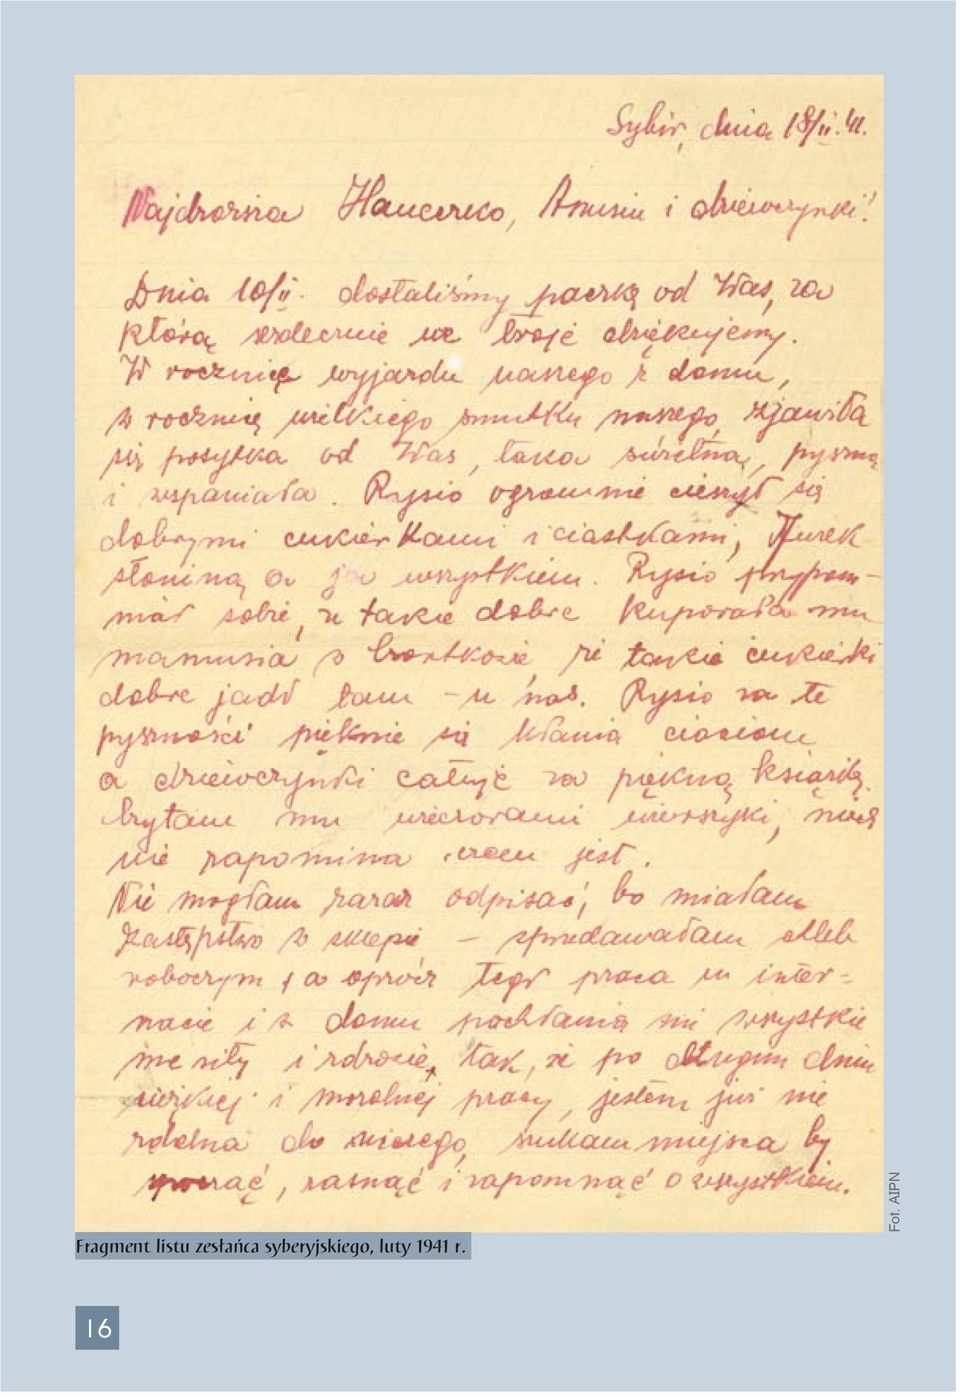 Sybir, dnia 18/II.41.
Najdroższa Haneczko, Anusiu i dziewczynki!
Dnia 10/II. dostaliśmy paczkę od Was, za
którą serdecznie we troje dziękujemy.
W rocznicę wyjazdu naszego z domu,
w rocznicę wielkiego smutku naszego, zjawiła
się posyłka od Was, taka świetna, pyszna
i wspaniała. Rysio ogromnie cieszył się
dobrymi cukierkami i ciastkami, Jurek
słoniną a ja wszystkiem. Rysio przypom-
niał sobie, że takie dobre kupowała mu
mamusia w, że takie cukierki
dobre jadł tam - u nas. Rysio za te
pyszności pięknie się kłania ciociom
a dziewczynki całuje za piękną książkę.
Czytam mu wieczorami wierszyki, niech
nie zapomina czem jest.
Nie mogłam zaraz odpisać, bo miałam
zastępstwo w sklepie - sprzedawałam chleb
roboczym, a oprócz tego praca w inter-
nacie i w domu pochłania mi wszystkie
me siły i zdrowie, tak, że po długim dniu
ciężkiej i moralnej pracy, jestem już nie
zdolna do niczego, szukam miejsca by
spocząć, zasnąć i zapomnąć o wszystkiem.
Fot. AIPN
Fragment listu zesłańca syberyjskiego, luty 1941 r.
16